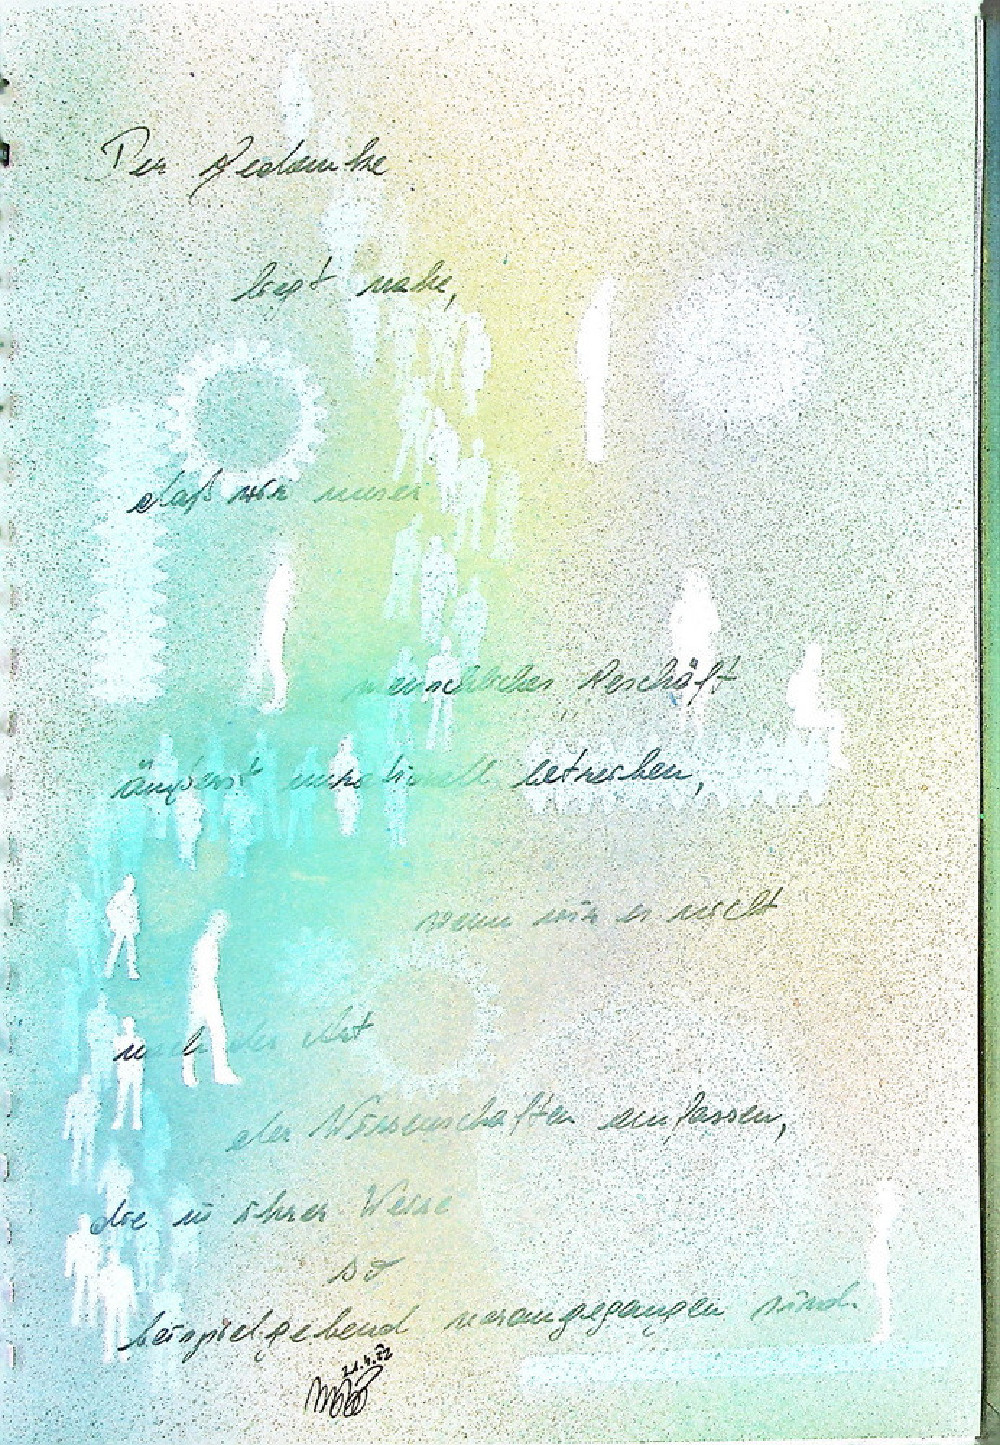 Der Gedanke
liegt nahe,
daß wir unser
menschliches Geschäft
äußerst unrationell betreiben,
wenn wir es nicht
nach der Art
der Wissenschaften anfassen,
die in ihrer Weise
so
beispielgebend vorangegangen sind.
21.4.22